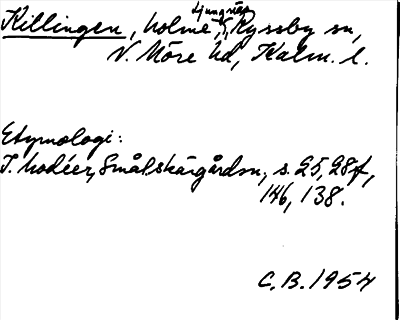 Killingen, holme, Ljungnäs, Ryssby sn,
N. Möre hd, Kalm. l.
Etymologi:
I. Modéer, Smål. skärgårdsn., s. 25, 28f,
146, 138.
C.B. 1954